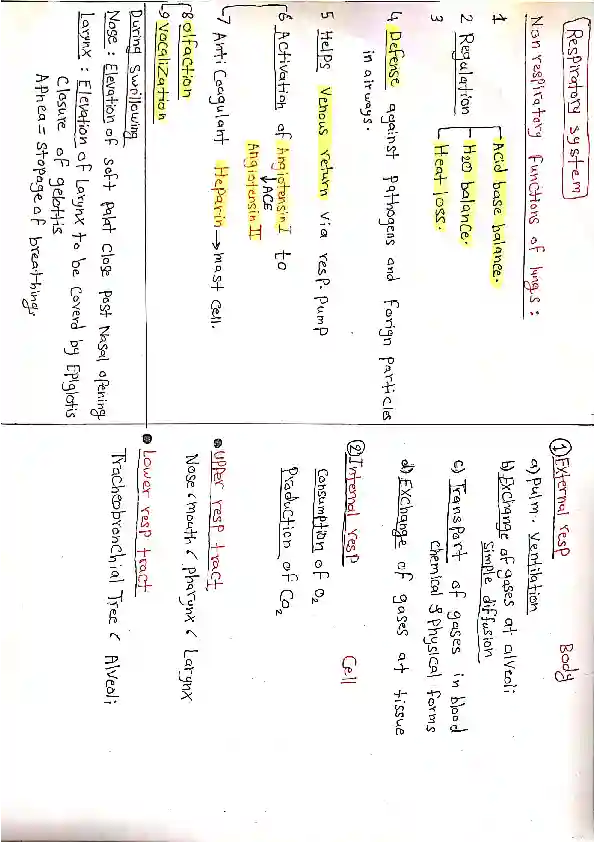 Respiratory system
Non respiratory functions of lungs :
1 Acid base balance.
2 Regulation H2O balance.
3 Heat loss.
4 Defense against pathogens and forign particles
in airways.
5 Helps Venous return via resp. pump
6 Activation of Angiotensin I to
↓ACE
Angiotensin II
7 Anti Coagulant Heparin → mast cell.
8 olfaction
9 vocalization
During Swillowing
Nose : Elevation of soft palat close post Nasal opening
Larynx : Elevation of larynx to be coverd by Epiglotis
Closure of gelottis
Apnea = stopage of breathings
① External resp Body
a) pulm. ventilation
b) Exchange of gases at alveoli
simple diffusion
c) Transport of gases in blood
chemical & physical forms
d) Exchange of gases at tissue
② Internal resp Cell
Consumption of O2
Production of Co2
• upper resp tract
Nose ‹ mouth ‹ pharynx ‹ Larynx
• Lower resp tract
Tracheobronchial Tree ‹ Alveoli